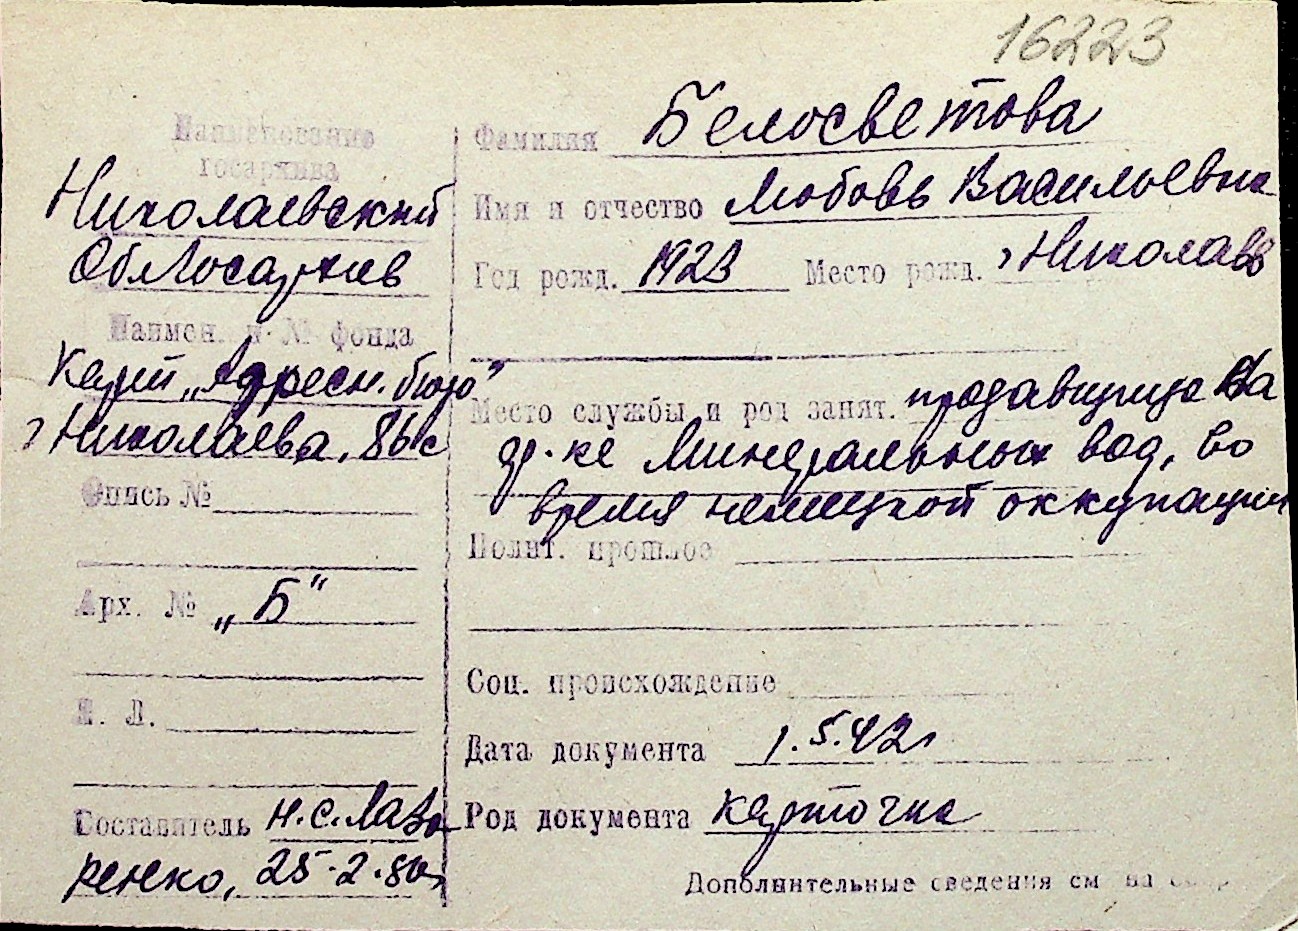 16223
Наименование
госархива
Николаевский
Облгосархив
Наимен. и № фонда
Карт. „Адресн. бюро"
г Николаева, 86 с
Опись №
Арх. № „Б"
Л. Л.
Составитель Н.С. Лаза-
ренко, 25.2.80г
Фамилия Белосветова
Имя и отчество Любовь Васильевна
Год рожд. 1923 Место рожд. г Николаев
Место службы и род занят. продавщица
др-ке Минеральных вод, во
время немецкой оккупации
Полит. прошлое
Соц. происхождение
Дата документа 1.5.42г
Род документа карточка
Дополнительные сведения см на